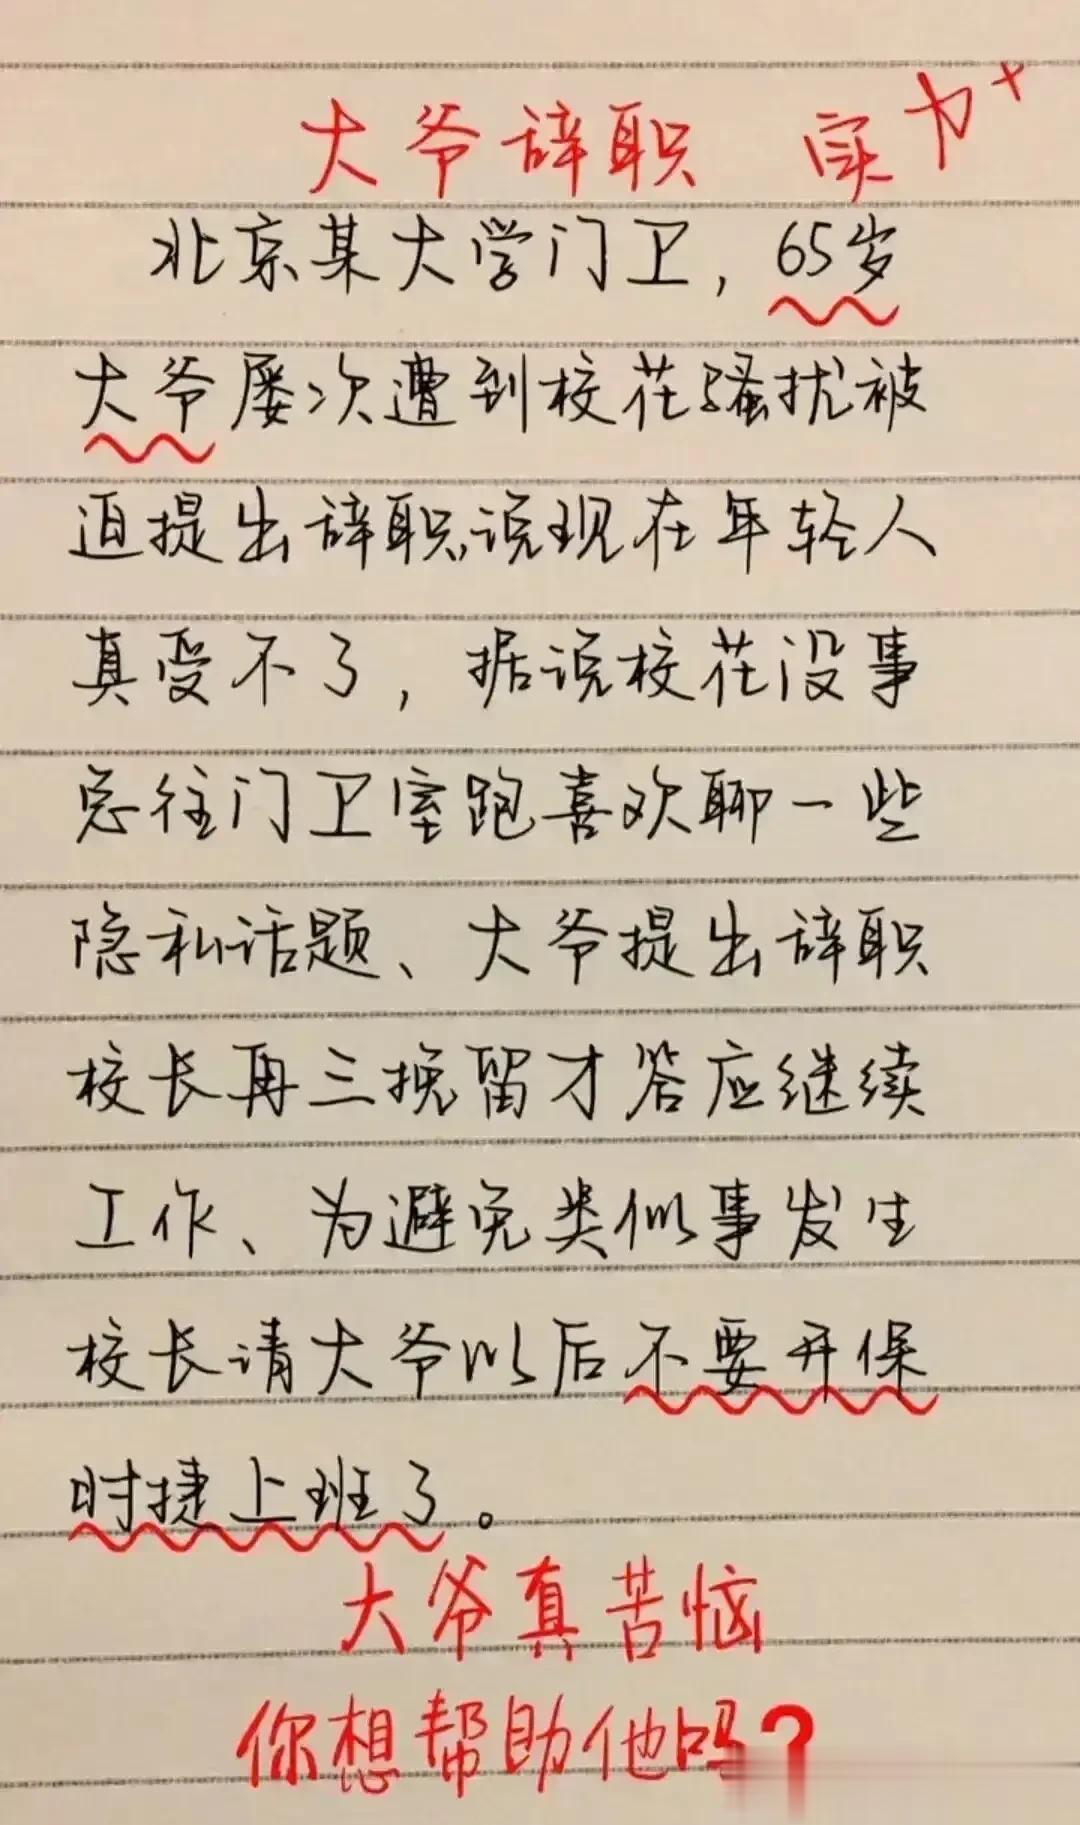 大爷辞职 实力+
北京某大学门卫，65岁
大爷屡次遭到校花骚扰被
迫提出辞职，说现在年轻人
真受不了，据说校花没事
总往门卫室跑喜欢聊一些
隐私话题、大爷提出辞职
校长再三挽留才答应继续
工作、为避免类似事发生
校长请大爷以后不要开保
时捷上班了。
大爷真苦恼
你想帮助他吗？